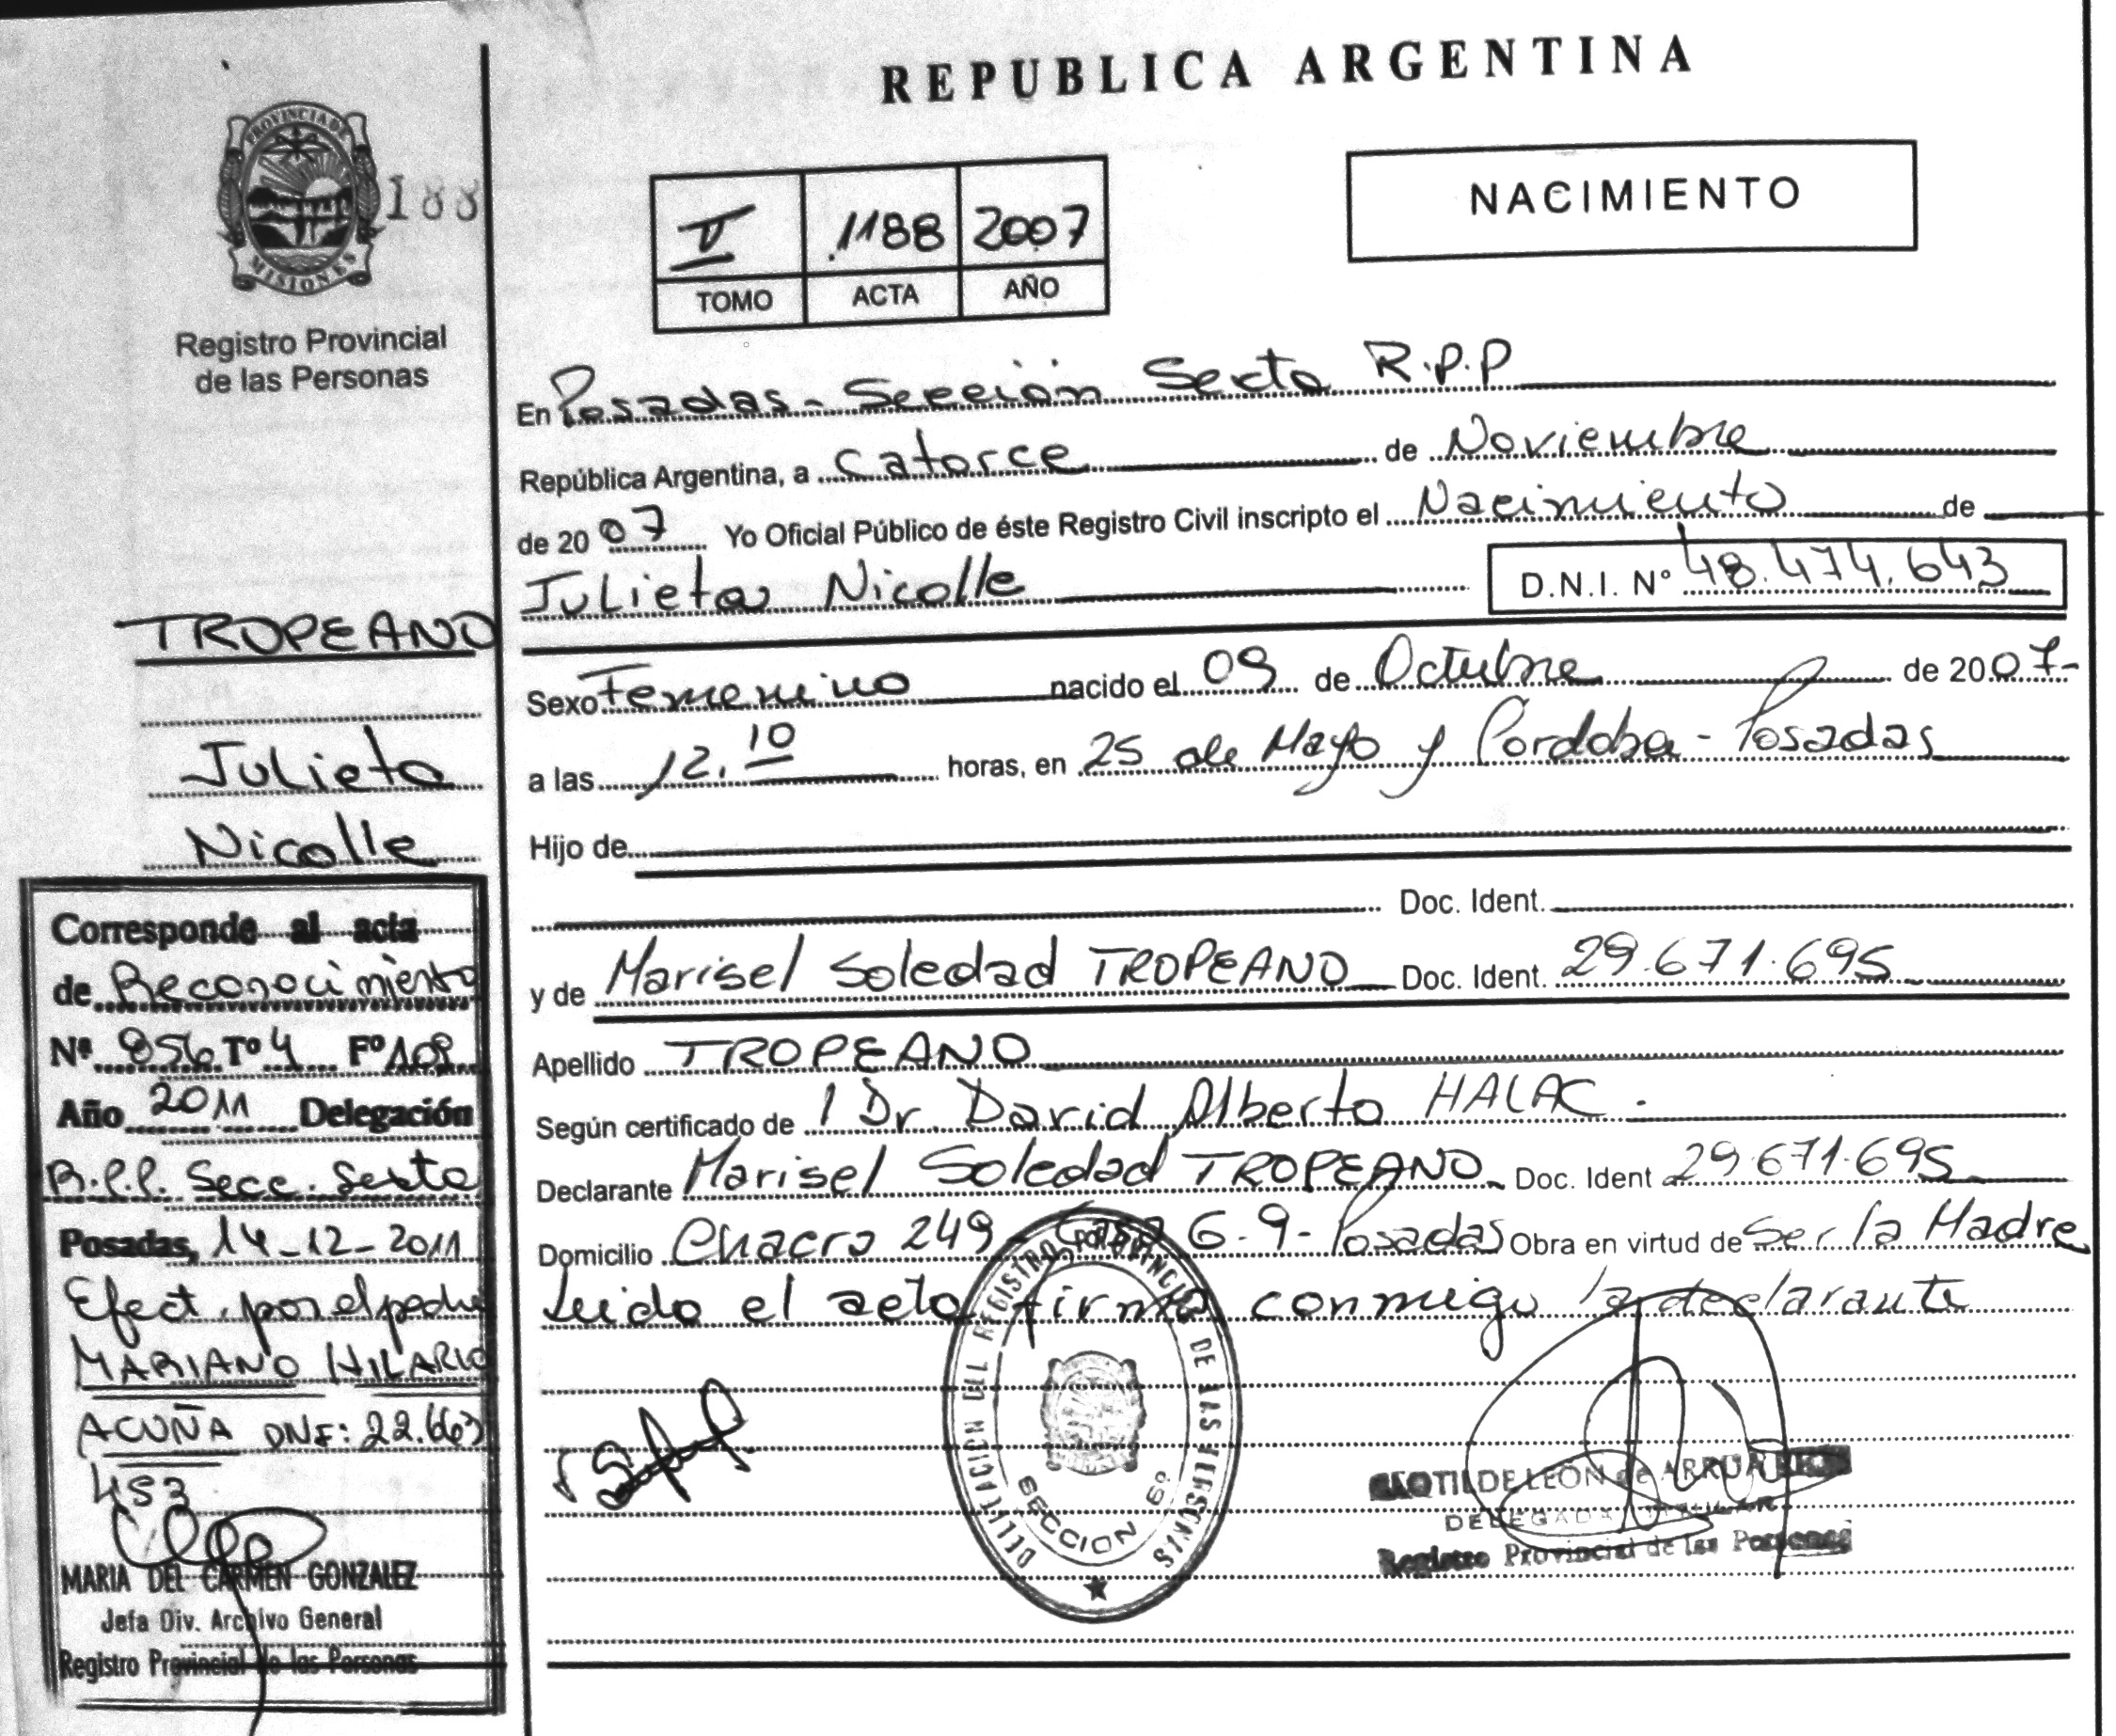 REPUBLICA ARGENTINA
PROVINCIA DE
MISIONES
188
Registro Provincial
de las Personas
V 1188 2007
TOMO ACTA AÑO
NACIMIENTO
En Posadas - Sección Sexta R.P.P
República Argentina, a Catorce de Noviembre
de 2007 Yo Oficial Público de éste Registro Civil inscripto el Nacimiento de
Julieta Nicolle D.N.I. Nº 48.474.643
Sexo Femenino nacido el 09 de Octubre de 2007-
a las 12.10 horas, en 25 de Mayo y Cordoba - Posadas
Hijo de
Doc. Ident.
y de Marisel Soledad TROPEANO Doc. Ident. 29.671.695
Apellido TROPEANO
Según certificado de Dr. David Alberto HALAC.
Declarante Marisel Soledad TROPEANO Doc. Ident 29.671.695
Domicilio Chacra 249 - Casa 6-9- Posadas Obra en virtud de Ser la Madre
Leido el acta firma conmigo la declarante
DELEGACION DEL REGISTRO PROVINCIAL DE LAS PERSONAS
SECCION 6º
CLOTILDE LEÓN de ARRUA
DELEGADA TITULAR
Registro Provincial de las Personas
TROPEANO
Julieta
Nicolle
Corresponde al acta
de Reconocimiento
Nº 856 Tº 4 Fº 108
Año 2011 Delegación
R.P.P. Secc. Sexta
Posadas, 14-12-2011
Efect. por el padre
MARIANO HILARIO
ACUÑA DNI: 22.663
453
MARIA DEL CARMEN GONZALEZ
Jefa Div. Archivo General
Registro Provincial de las Personas